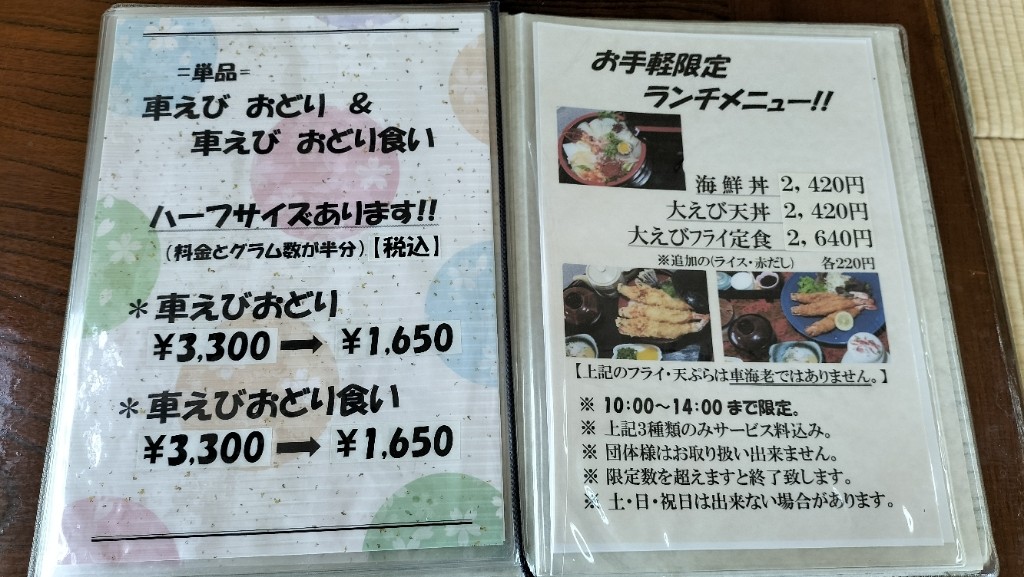 =単品=
車えび おどり &
車えび おどり食い
ハーフサイズあります!!
(料金とグラム数が半分)【税込】
＊車えびおどり
¥3,300➡¥1,650
＊車えびおどり食い
¥3,300➡¥1,650
お手軽限定
ランチメニュー!!
海鮮丼 2,420円
大えび天丼 2,420円
大えびフライ定食 2,640円
※追加の(ライス・赤だし) 各220円
【上記のフライ・天ぷらは車海老ではありません。】
※ 10:00～14:00 まで限定。
※ 上記3種類のみサービス料込み。
※ 団体様はお取り扱い出来ません。
※ 限定数を超えますと終了致します。
※ 土・日・祝日は出来ない場合があります。